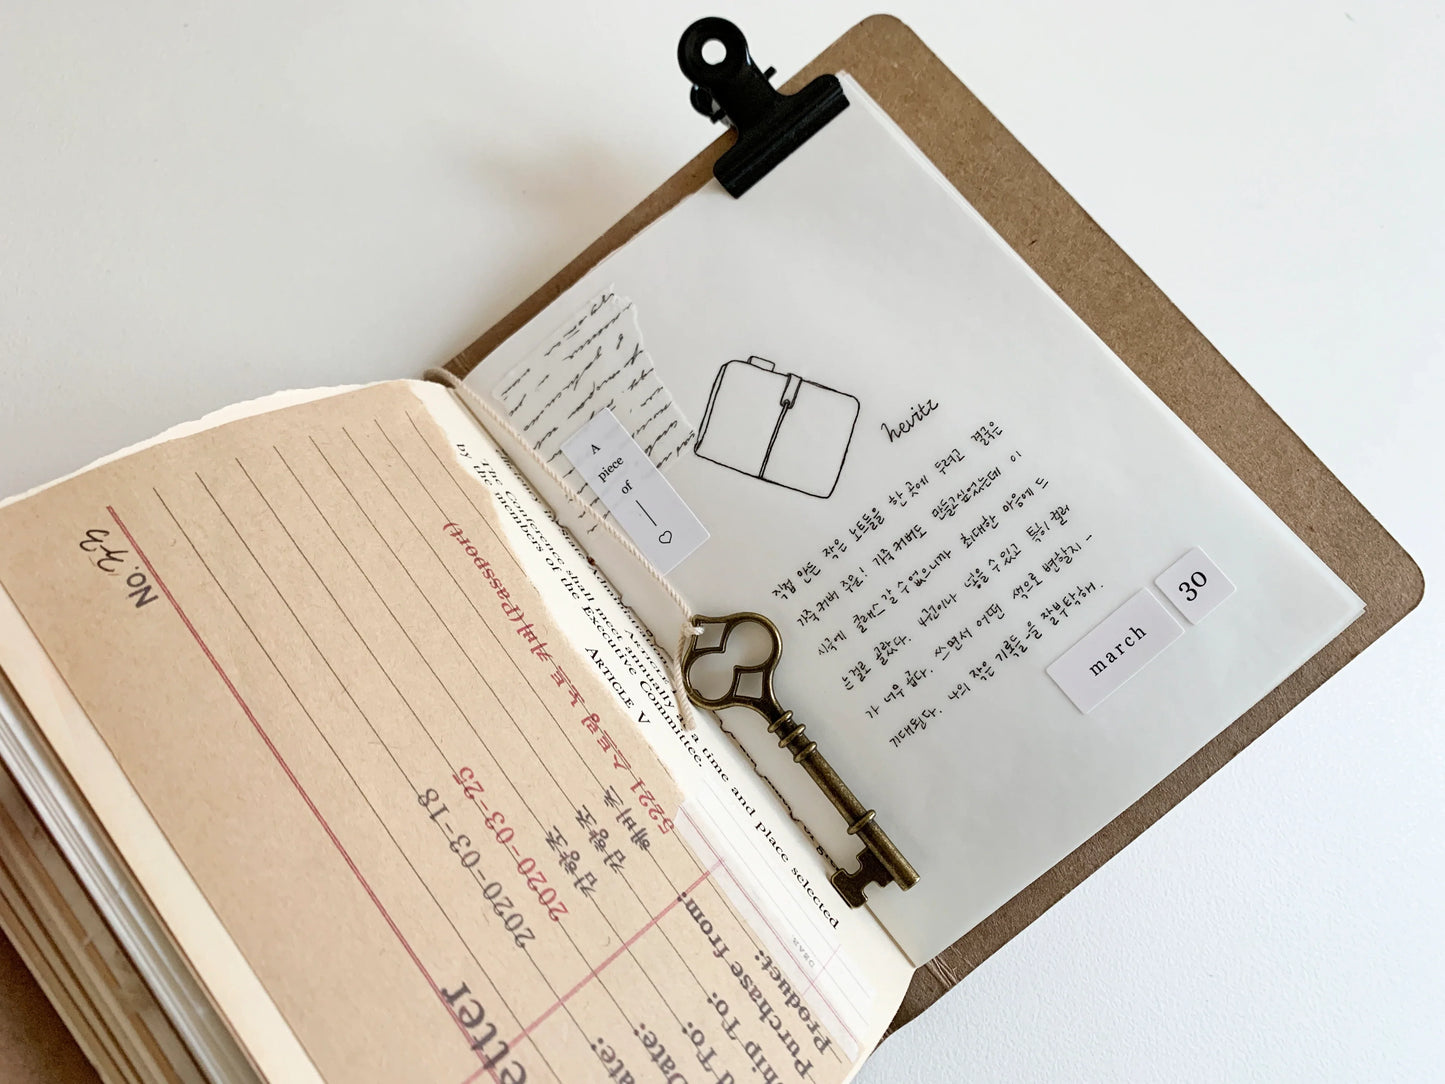 heritz
직접 만든 작은 노트들을 한 곳에 두려고 결국은
가죽커버 주문! 가죽커버도 만들고싶었는데 이
시국에 클래스갈 수 없으니까 최대한 마음에 드
는걸로 골랐다. 4권이나 넣을 수 있고 특히 컬러
가 너무 곱다. 쓰면서 어떤 색으로 변할지-
기대된다. 나의 작은 기록들을 잘부탁해.
march
30
A
piece
of
The Conference shall meet annually at a time and place selected
by the members of the Executive Committee.
ARTICLE V
No. 73
5221 스트링 노트 커버(Passport)
해비츠
김향조
김향조
2020-03-25
2020-03-18
Product:
Purchase from:
Ship To:
To:
Date:
Date:
etter
DEAR